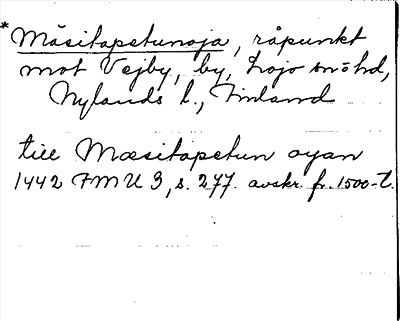 *Mäsitapetunoja, råpunkt
mot Vejby, by, Lojo sn o hd,
Nylands l., Finland
till Mæsitapetun oyan
1442 FMU 3, s. 277. avskr. fr. 1500-t.